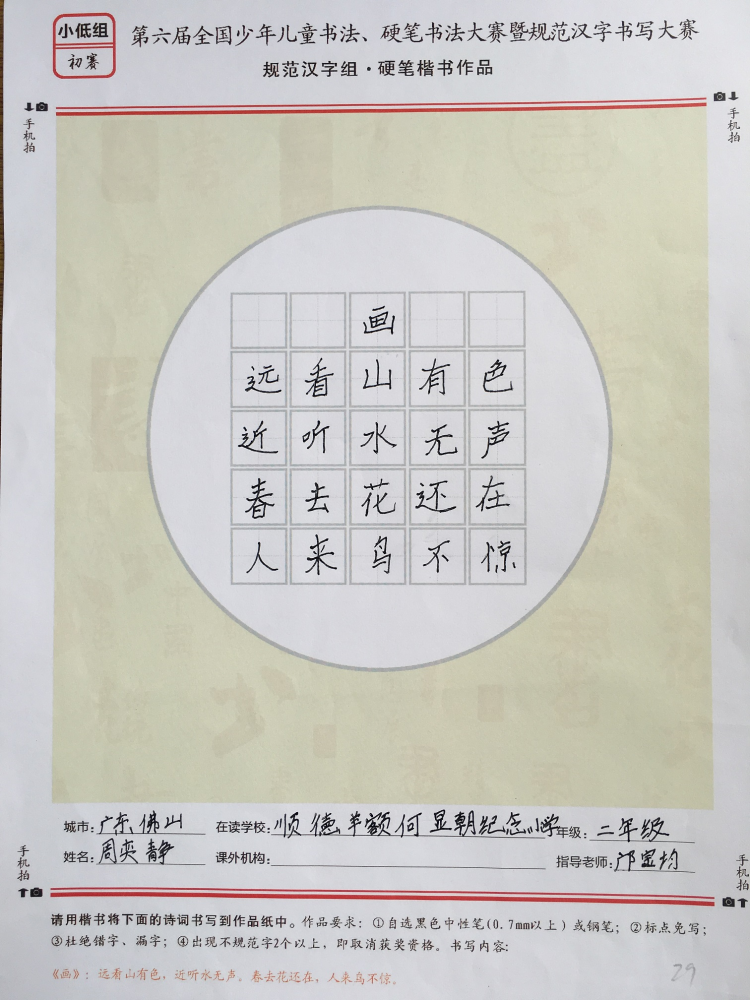 小低组
初赛
第六届全国少年儿童书法、硬笔书法大赛暨规范汉字书写大赛
规范汉字组·硬笔楷书作品
手机拍
手机拍
画
远看山有色
近听水无声
春去花还在
人来鸟不惊
城市：广东佛山 在读学校：顺德羊额何显朝纪念小学 年级：二年级
姓名：周奕静 课外机构： 指导老师：邝宝均
手机拍
手机拍
请用楷书将下面的诗词书写到作品纸中。作品要求：①自选黑色中性笔(0.7mm以上）或钢笔；②标点免写；
③杜绝错字、漏字；④出现不规范字2个以上，即取消获奖资格。书写内容：
《画》：远看山有色，近听水无声。春去花还在，人来鸟不惊。
29